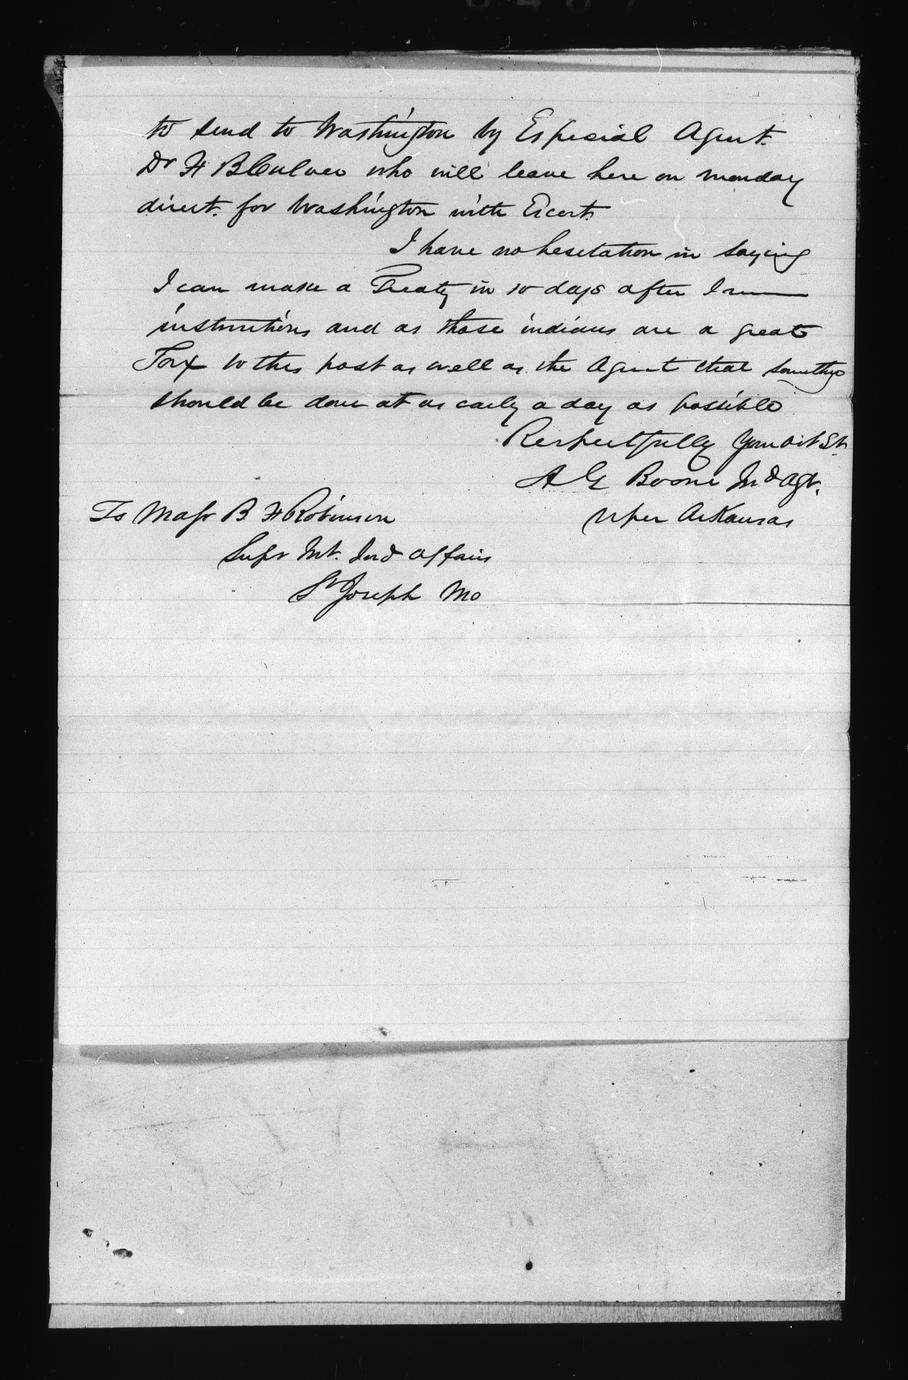 to send to Washington by Especial Agent.
Dr F B Culver who will leave here on monday
direct. for Washington with Escort.
I have no hesetation in saying
I can make a Treaty in 10 days after I
instructions and as those indians are a great
Tax to this post as well as the Agent that somethg
should be done at as early a day as possible
Respectfully Your obt St.
A G Boone Ind Agt.
To Majr B F Robinson
Upper Arkansas
Supr Int. Ind affairs
St Joseph Mo